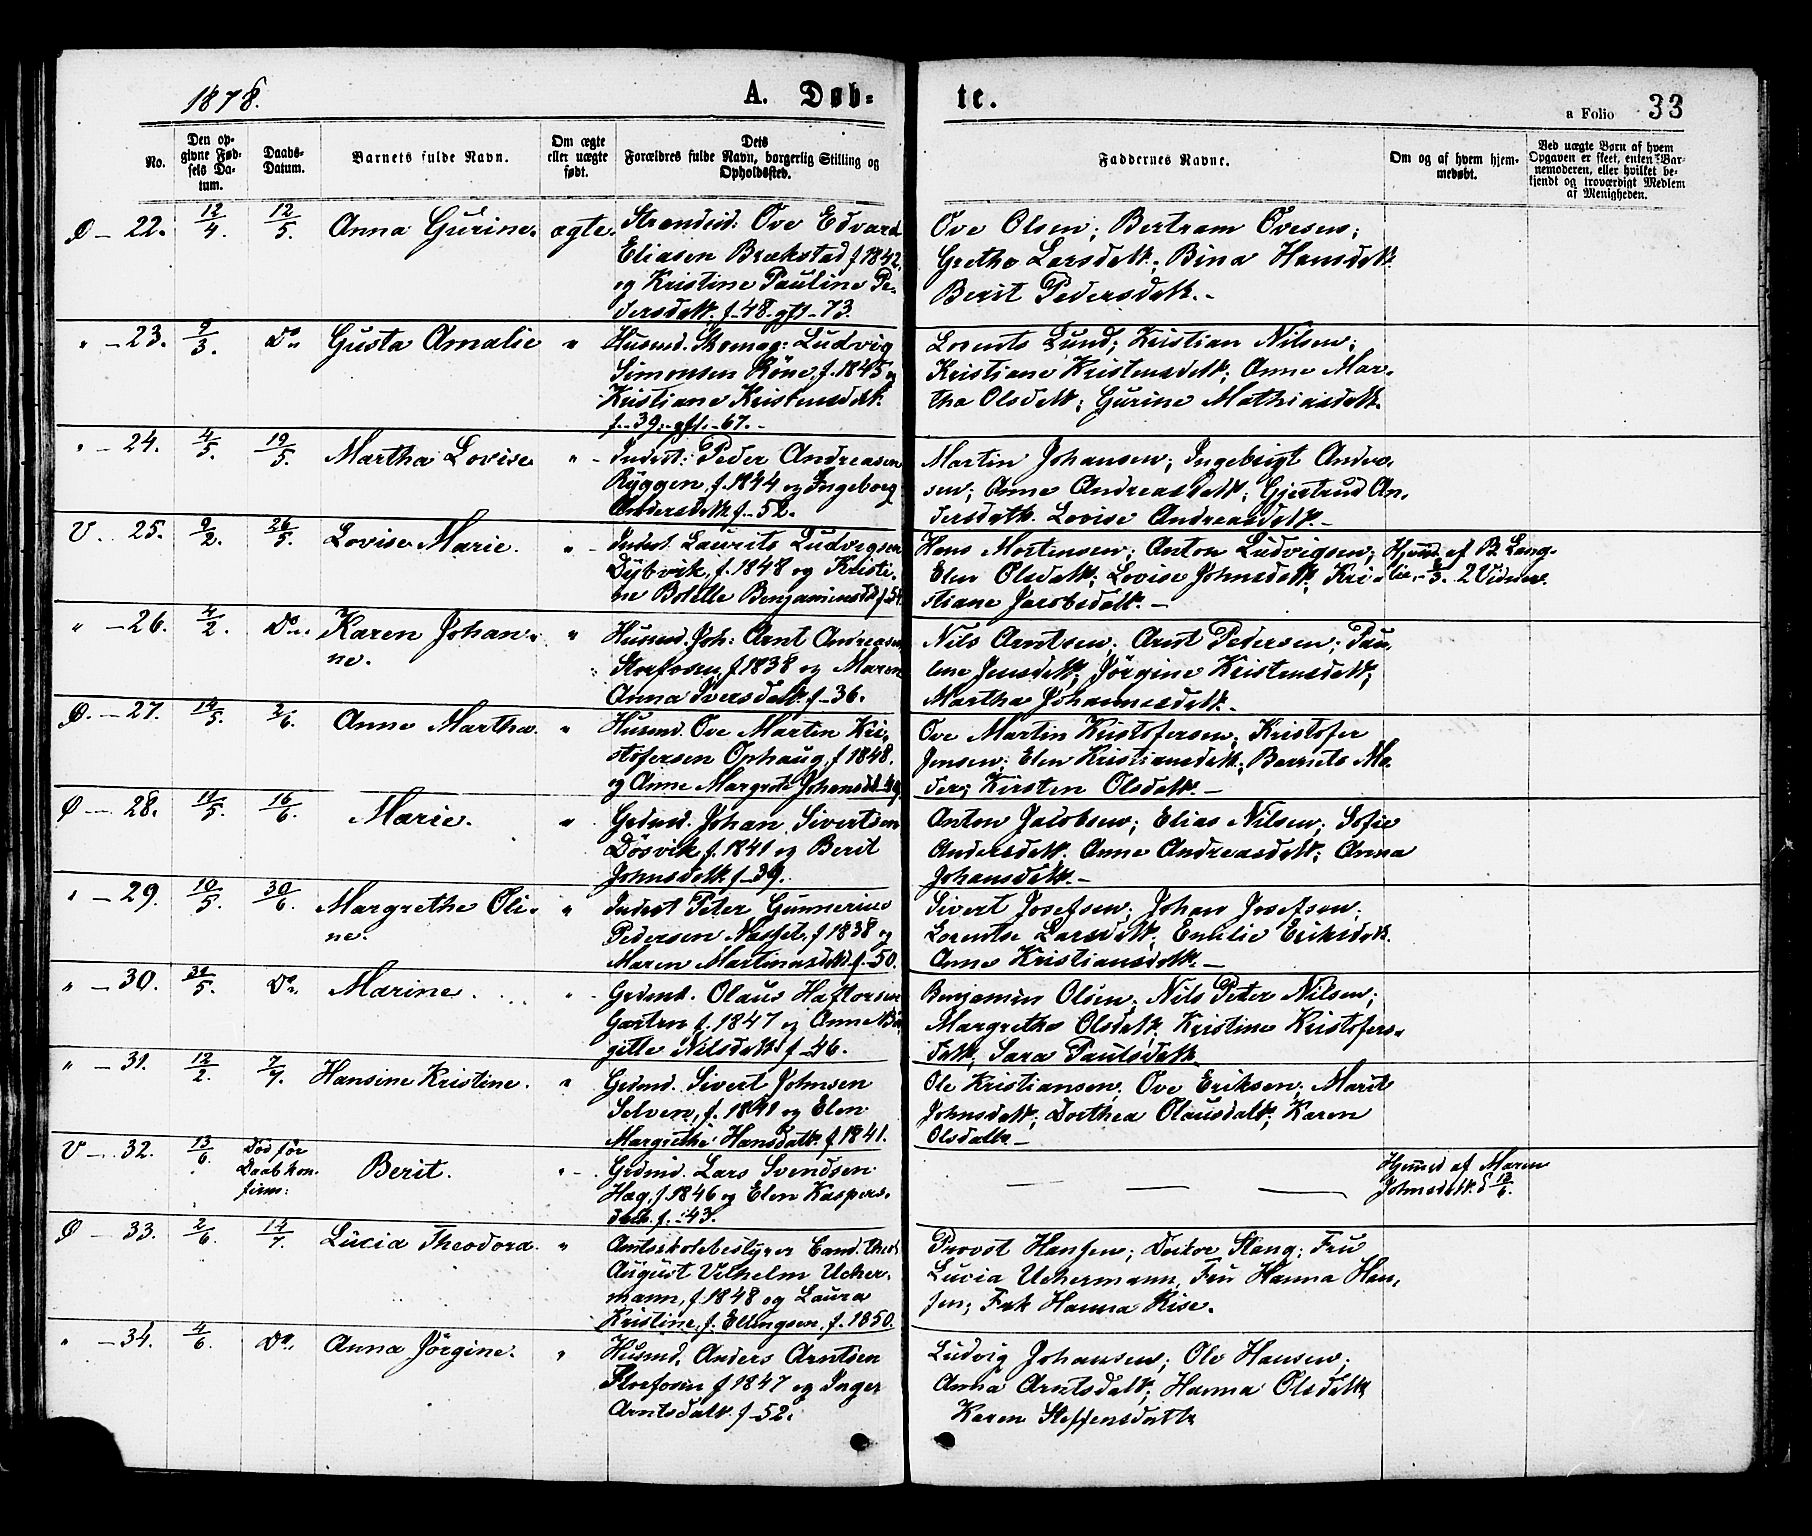 1878.
A. Døb-
te.
a Folio 33
No.
Den op-
givne Fød-
sels Da-
tum.
Daabs-
Datum.
Barnets fulde Navn.
Om ægte
eller uægte
født.
Dets
Forældres fulde Navn, borgerlig Stilling og
Opholdssted.
Faddernes Navne.
Om og af hvem hjem-
medøbt.
Ved uægte Børn af hvem
Opgaven er skeet, enten Bar-
nemoderen, eller hvilket be-
kjendt og troværdigt Medlem
af Menigheden.
Ø - 22. 12/4. 12/5. Anna Gurine. ægte.
Strandsid. Ove Edvard
Eliasen Brækstad f. 1842.
og Kristine Pauline Pe-
dersdatt. f. 48. gft. 73.
Ove Olsen; Bertram Ovesen;
Grethe Larsdatt.; Bina Hansdatt.
Berit Pedersdatt. -
" - 23. 9/3. Do. Gusta Amalie "
Husmd. Skomag: Ludvig
Simonsen Röne, f. 1845 og
Kristiane Kristensdatt.
f. 39. gft. 67. -
Lorents Lund; Kristian Nilsen;
Kristiane Kristensdatt; Anne Mar-
tha Olsdatt; Gurine Mathiasdatt.
" - 24. 4/5. 19/5. Martha Lovise "
Inderst: Peder Andreasen
Ryggen, f. 1844 og Ingeborg
Andersdatt. f. 52.
Martin Johansen; Ingebrigt Andre-
sen; Anne Andreasdatt; Gjertrud An-
dersdatt. Lovise Andreasdatt. -
V. 25. 9/2. 26/5. Lovise Marie. "
Inderst. Laurits Ludvigsen
Dybvik, f. 1848 og Kristi-
ne Bolette Benjaminsd. f. 54.
Hans Mortensen; Anton Ludvigsen;
Elen Olsdatt; Lovise Johnsdatt; Kri-
stiane Jacobsdatt. -
Hjmd. af B. Lang-
lie, /3. 2 Vidner.
" - 26. 4/2. Do. Karen Johan-
ne. "
Husmd. Joh: Arnt Andreasen
Storfosen, f. 1838 og Maren
Anna Iversdatt. f. 36.
Nils Arntsen; Arnt Pedersen; Pau-
line Jensdatt; Jørgine Kristensdatt;
Martha Johannesdatt. -
Ø. - 27. 14/5. 2/6. Anne Martha. "
Husmd. Ove Martin Kri-
stofersen Ophaug, f. 1848.
og Anne Margrete Johansd. 49.
Ove Martin Kristofersen; Kristofer
Jensen; Elen Kristiansdatt; Barnets Mo-
der; Kirsten Olsdatt. -
Ø - 28. 19/5. 16/6. Marie. "
Grdmd. Johan Sivertsen
Dösvik, f. 1841 og Berit
Johnsdatt. f. 39.
Anton Jacobsen; Elias Nilsen; Sofie
Andersdatt. Anne Andreasdatt; Anna
Johansdatt. -
" - 29. 10/5. 30/6. Margrethe Oli-
ne. "
Inderst Peter Gunnerius
Pedersen Næsset, f. 1838 og
Maren Martinusdatt. f. 50.
Sivert Josefsen; Johan Josefsen;
Lorentse Larsdatt; Emilie Eriksdatt.
Anne Kristiansdatt. -
" - 30. 31/5. Do. Marine. "
Grdmd. Olaus Haftorsen
Garten f. 1847 og Anne Bir-
gitte Nilsdatt. f. 46.
Benjamin Olsen; Nils Peter Nilsen;
Margrethe Olsdatt; Kristine Kristofers-
datt; Sara Paulsdatt.
" - 31. 12/2. 7/7. Hansine Kristine. "
Grdmd. Sivert Johnsen
Selven, f. 1841 og Elen
Margrethe Hansdatt. f. 1841.
Ole Kristiansen; Ove Eriksen; Marit
Johnsdatt; Dorthea Olausdatt; Karen
Olsdatt. -
V - 32. 13/6. Död för
Daab kon-
firm: Berit. "
Grdmd. Lars Svendsen
Hag, f. 1846 og Elen Kaspers-
datt. f. 43.
Hjmmd af Maren
Johnsdatt. d. 13/6.
Ø - 33. 2/6. 14/7. Lucia Theodora. "
Amtsskolebestyrer Cand. theol
August Vilhelm Ucher-
mann, f. 1848 og Laura
Kristine, f. Ellingsen, f. 1850.
Provst Hansen; Doktor Stang; Fru
Lucia Uchermann, Fru Hanna Han-
sen; Frk Hanna Rise.
" - 34. 4/6. Do. Anna Jörgine. "
Husmd. Anders Arntsen
Storfosen f. 1847 og Inger
Arntsdatt. f. 52.
Ludvig Johansen; Ole Hansen;
Anna Arntsdatt; Hanna Olsdatt
Karen Steffensdatt